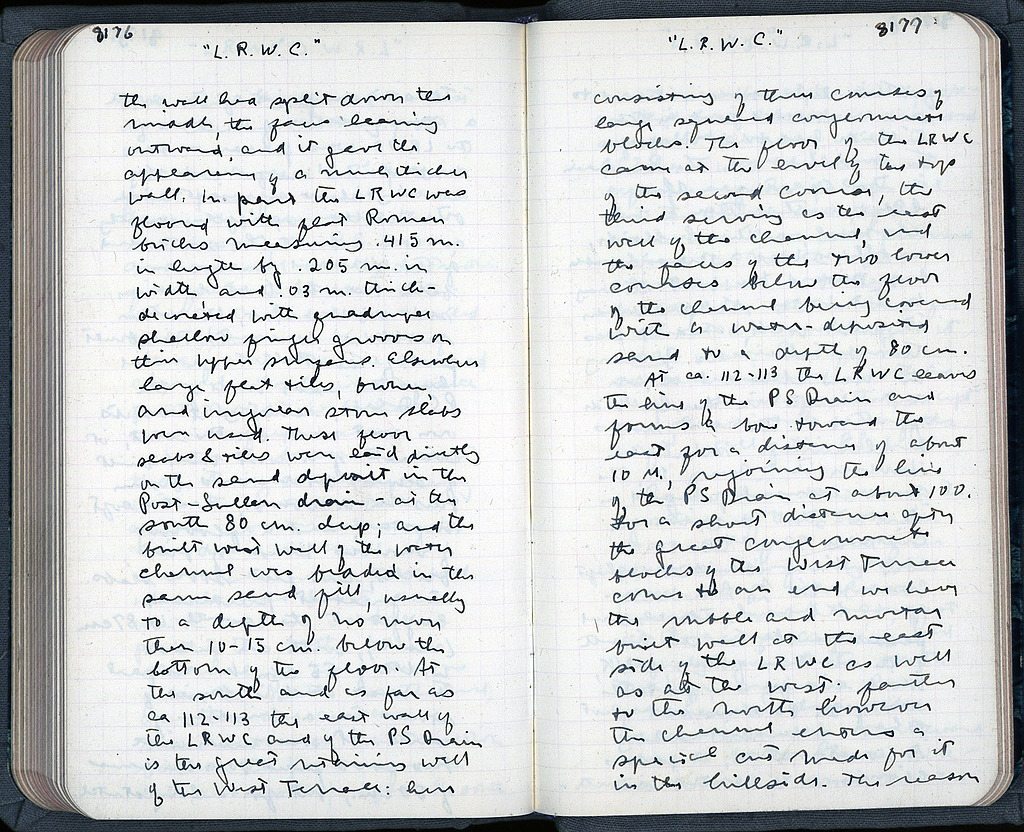 8176
"L. R. W. C."
the wall had split down the
middle, the faces leaning
outward, and it gave the
appearance of a much thicker
wall. In part the LRWC was
floored with flat Roman
bricks measuring .415 m.
in length by .205 m. in
width and .03 m. thick -
decorated with quadruple
shallow finger grooves on
their upper surfaces. Elsewhere
large flat tiles, broken
and irregular stone slabs
were used. These floor
slabs & tiles were laid directly
on the sand deposit in the
Post-Sullan drain - at the
south 80 cm. deep; and the
built west wall of the water
channel was bedded in the
same sand fill, usually
to a depth of no more
than 10-15 cm. below the
bottom of the floor. At
the south and as far as
ca 112-113 the east wall of
the LRWC and of the PS Drain
is the great retaining wall
of the West Terrace: here
8177
"L. R. W. C."
consisting of three courses of
large squared conglomerate
blocks. The floor of the LRWC
came at the level of the top
of the second course, the
third serving as the east
wall of the channel, and
the faces of the two lower
courses below the floor
of the channel being covered
with a water-deposited
sand to a depth of 80 cm.
At ca. 112-113 the LRWC leaves
the line of the PS Drain and
forms a bow toward the
east for a distance of about
10 M, rejoining the line
of the PS Drain at about 100.
For a short distance after
the great conglomerate
blocks of the West Terrace
come to an end we have
the rubble and mortar
built wall at the east
side of the LRWC as well
as at the west; farther
to the north however
the channel enters a
special cut made for it
in the hillside. The reason